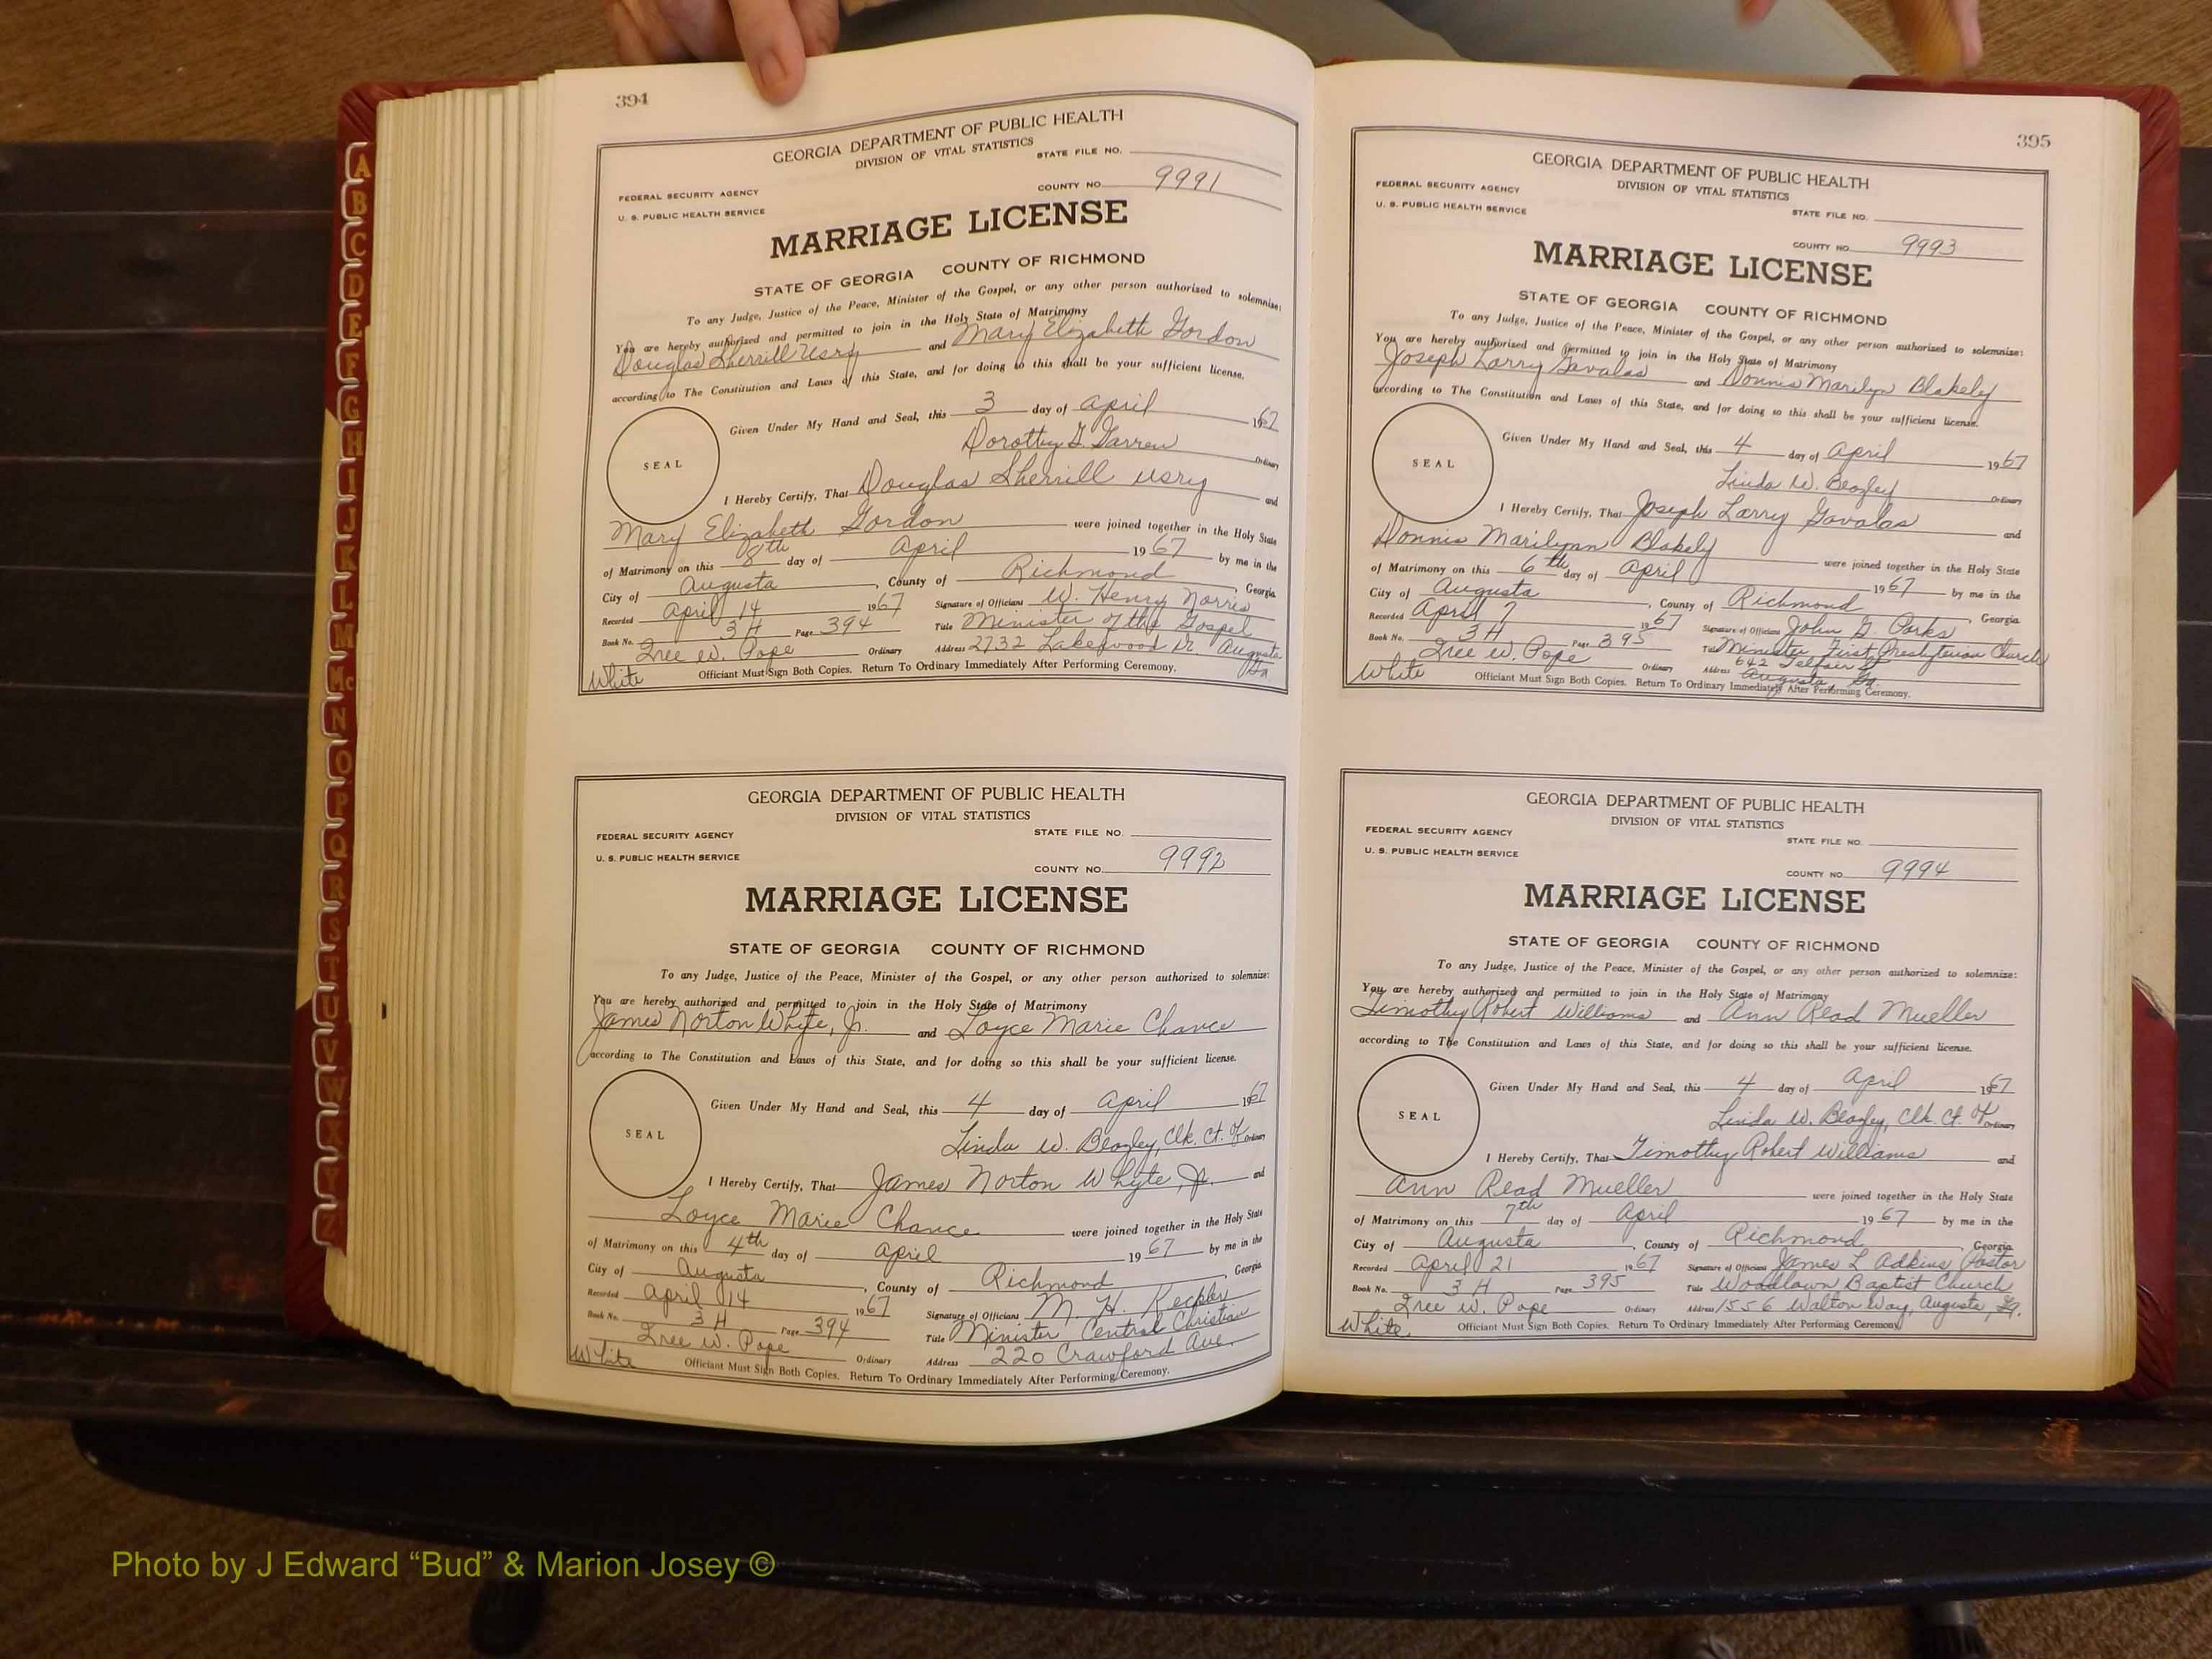 394
GEORGIA DEPARTMENT OF PUBLIC HEALTH
DIVISION OF VITAL STATISTICS
STATE FILE NO.
FEDERAL SECURITY AGENCY
COUNTY NO. 9991
U. S. PUBLIC HEALTH SERVICE
MARRIAGE LICENSE
STATE OF GEORGIA COUNTY OF RICHMOND
To any Judge, Justice of the Peace, Minister of the Gospel, or any other person authorized to solemnize:
You are hereby authorized and permitted to join in the Holy State of Matrimony
Douglas Sherrill Usry and Mary Elizabeth Gordon
according to The Constitution and Laws of this State, and for doing so this shall be your sufficient license.
Given Under My Hand and Seal, this 3 day of April 1967
Dorothy G. Garren Ordinary
SEAL
I Hereby Certify, That Douglas Sherrill Usry and
Mary Elizabeth Gordon were joined together in the Holy State
of Matrimony on this 8th day of April 1967 by me in the
City of Augusta, County of Richmond, Georgia
Recorded April 14 1967 Signature of Officiant W. Henry Norris
Book No. 3 H Page 394 Title Minister of the Gospel
Gree W. Pope Ordinary Address 2732 Lakewood Dr Augusta Ga
White Officiant Must Sign Both Copies. Return To Ordinary Immediately After Performing Ceremony.
GEORGIA DEPARTMENT OF PUBLIC HEALTH
DIVISION OF VITAL STATISTICS
FEDERAL SECURITY AGENCY STATE FILE NO.
U. S. PUBLIC HEALTH SERVICE
COUNTY NO. 9992
MARRIAGE LICENSE
STATE OF GEORGIA COUNTY OF RICHMOND
To any Judge, Justice of the Peace, Minister of the Gospel, or any other person authorized to solemnize:
You are hereby authorized and permitted to join in the Holy State of Matrimony
James Norton Whyte, Jr. and Loyce Marie Chance
according to The Constitution and Laws of this State, and for doing so this shall be your sufficient license.
Given Under My Hand and Seal, this 4 day of April 1967
Linda W. Beazley, Clk. Ct. of Ordinary
SEAL
I Hereby Certify, That James Norton Whyte, Jr. and
Loyce Marie Chance were joined together in the Holy State
of Matrimony on this 4th day of April 1967 by me in the
City of Augusta, County of Richmond, Georgia
Recorded April 14 1967 Signature of Officiant M. H. Keppler
Book No. 3 H Page 394 Title Minister Central Christian
Gree W. Pope Ordinary Address 220 Crawford Ave.
White Officiant Must Sign Both Copies. Return To Ordinary Immediately After Performing Ceremony.
395
GEORGIA DEPARTMENT OF PUBLIC HEALTH
DIVISION OF VITAL STATISTICS
FEDERAL SECURITY AGENCY
U. S. PUBLIC HEALTH SERVICE
STATE FILE NO.
COUNTY NO. 9993
MARRIAGE LICENSE
STATE OF GEORGIA COUNTY OF RICHMOND
To any Judge, Justice of the Peace, Minister of the Gospel, or any other person authorized to solemnize:
You are hereby authorized and permitted to join in the Holy State of Matrimony
Joseph Larry Gavalas and Donnis Marilyn Blakely
according to The Constitution and Laws of this State, and for doing so this shall be your sufficient license.
Given Under My Hand and Seal, this 4 day of April 1967
Linda W. Beazley Ordinary
SEAL
I Hereby Certify, That Joseph Larry Gavalas and
Donnis Marilynn Blakely were joined together in the Holy State
of Matrimony on this 6th day of April 1967 by me in the
City of Augusta, County of Richmond, Georgia
Recorded April 7 1967 Signature of Officiant John G. Parks
Book No. 3 H Page 395 Title Minister First Presbyterian Church
Gree W. Pope Ordinary Address 642 Telfair St
Augusta, Ga.
White Officiant Must Sign Both Copies. Return To Ordinary Immediately After Performing Ceremony.
GEORGIA DEPARTMENT OF PUBLIC HEALTH
DIVISION OF VITAL STATISTICS
FEDERAL SECURITY AGENCY
STATE FILE NO.
U. S. PUBLIC HEALTH SERVICE
COUNTY NO. 9994
MARRIAGE LICENSE
STATE OF GEORGIA COUNTY OF RICHMOND
To any Judge, Justice of the Peace, Minister of the Gospel, or any other person authorized to solemnize:
You are hereby authorized and permitted to join in the Holy State of Matrimony
Timothy Robert Williams and Ann Read Mueller
according to The Constitution and Laws of this State, and for doing so this shall be your sufficient license.
Given Under My Hand and Seal, this 4 day of April 1967
Linda W. Beazley, Clk. Ct. of Ordinary
SEAL
I Hereby Certify, That Timothy Robert Williams and
Ann Read Mueller were joined together in the Holy State
of Matrimony on this 7th day of April 1967 by me in the
City of Augusta, County of Richmond, Georgia
Recorded April 21 1967 Signature of Officiant James L Adkins Pastor
Book No. 3 H Page 395 Title Woodlawn Baptist Church
Gree W. Pope Ordinary Address 1556 Walton Way, Augusta, Ga.
White Officiant Must Sign Both Copies. Return To Ordinary Immediately After Performing Ceremony.
A
B
C
D
E
F
G
H
I
J
K
L
M
Mc
N
O
P
Q
R
S
T
U
V
W
X
Y
Z
Photo by J Edward “Bud” & Marion Josey ©